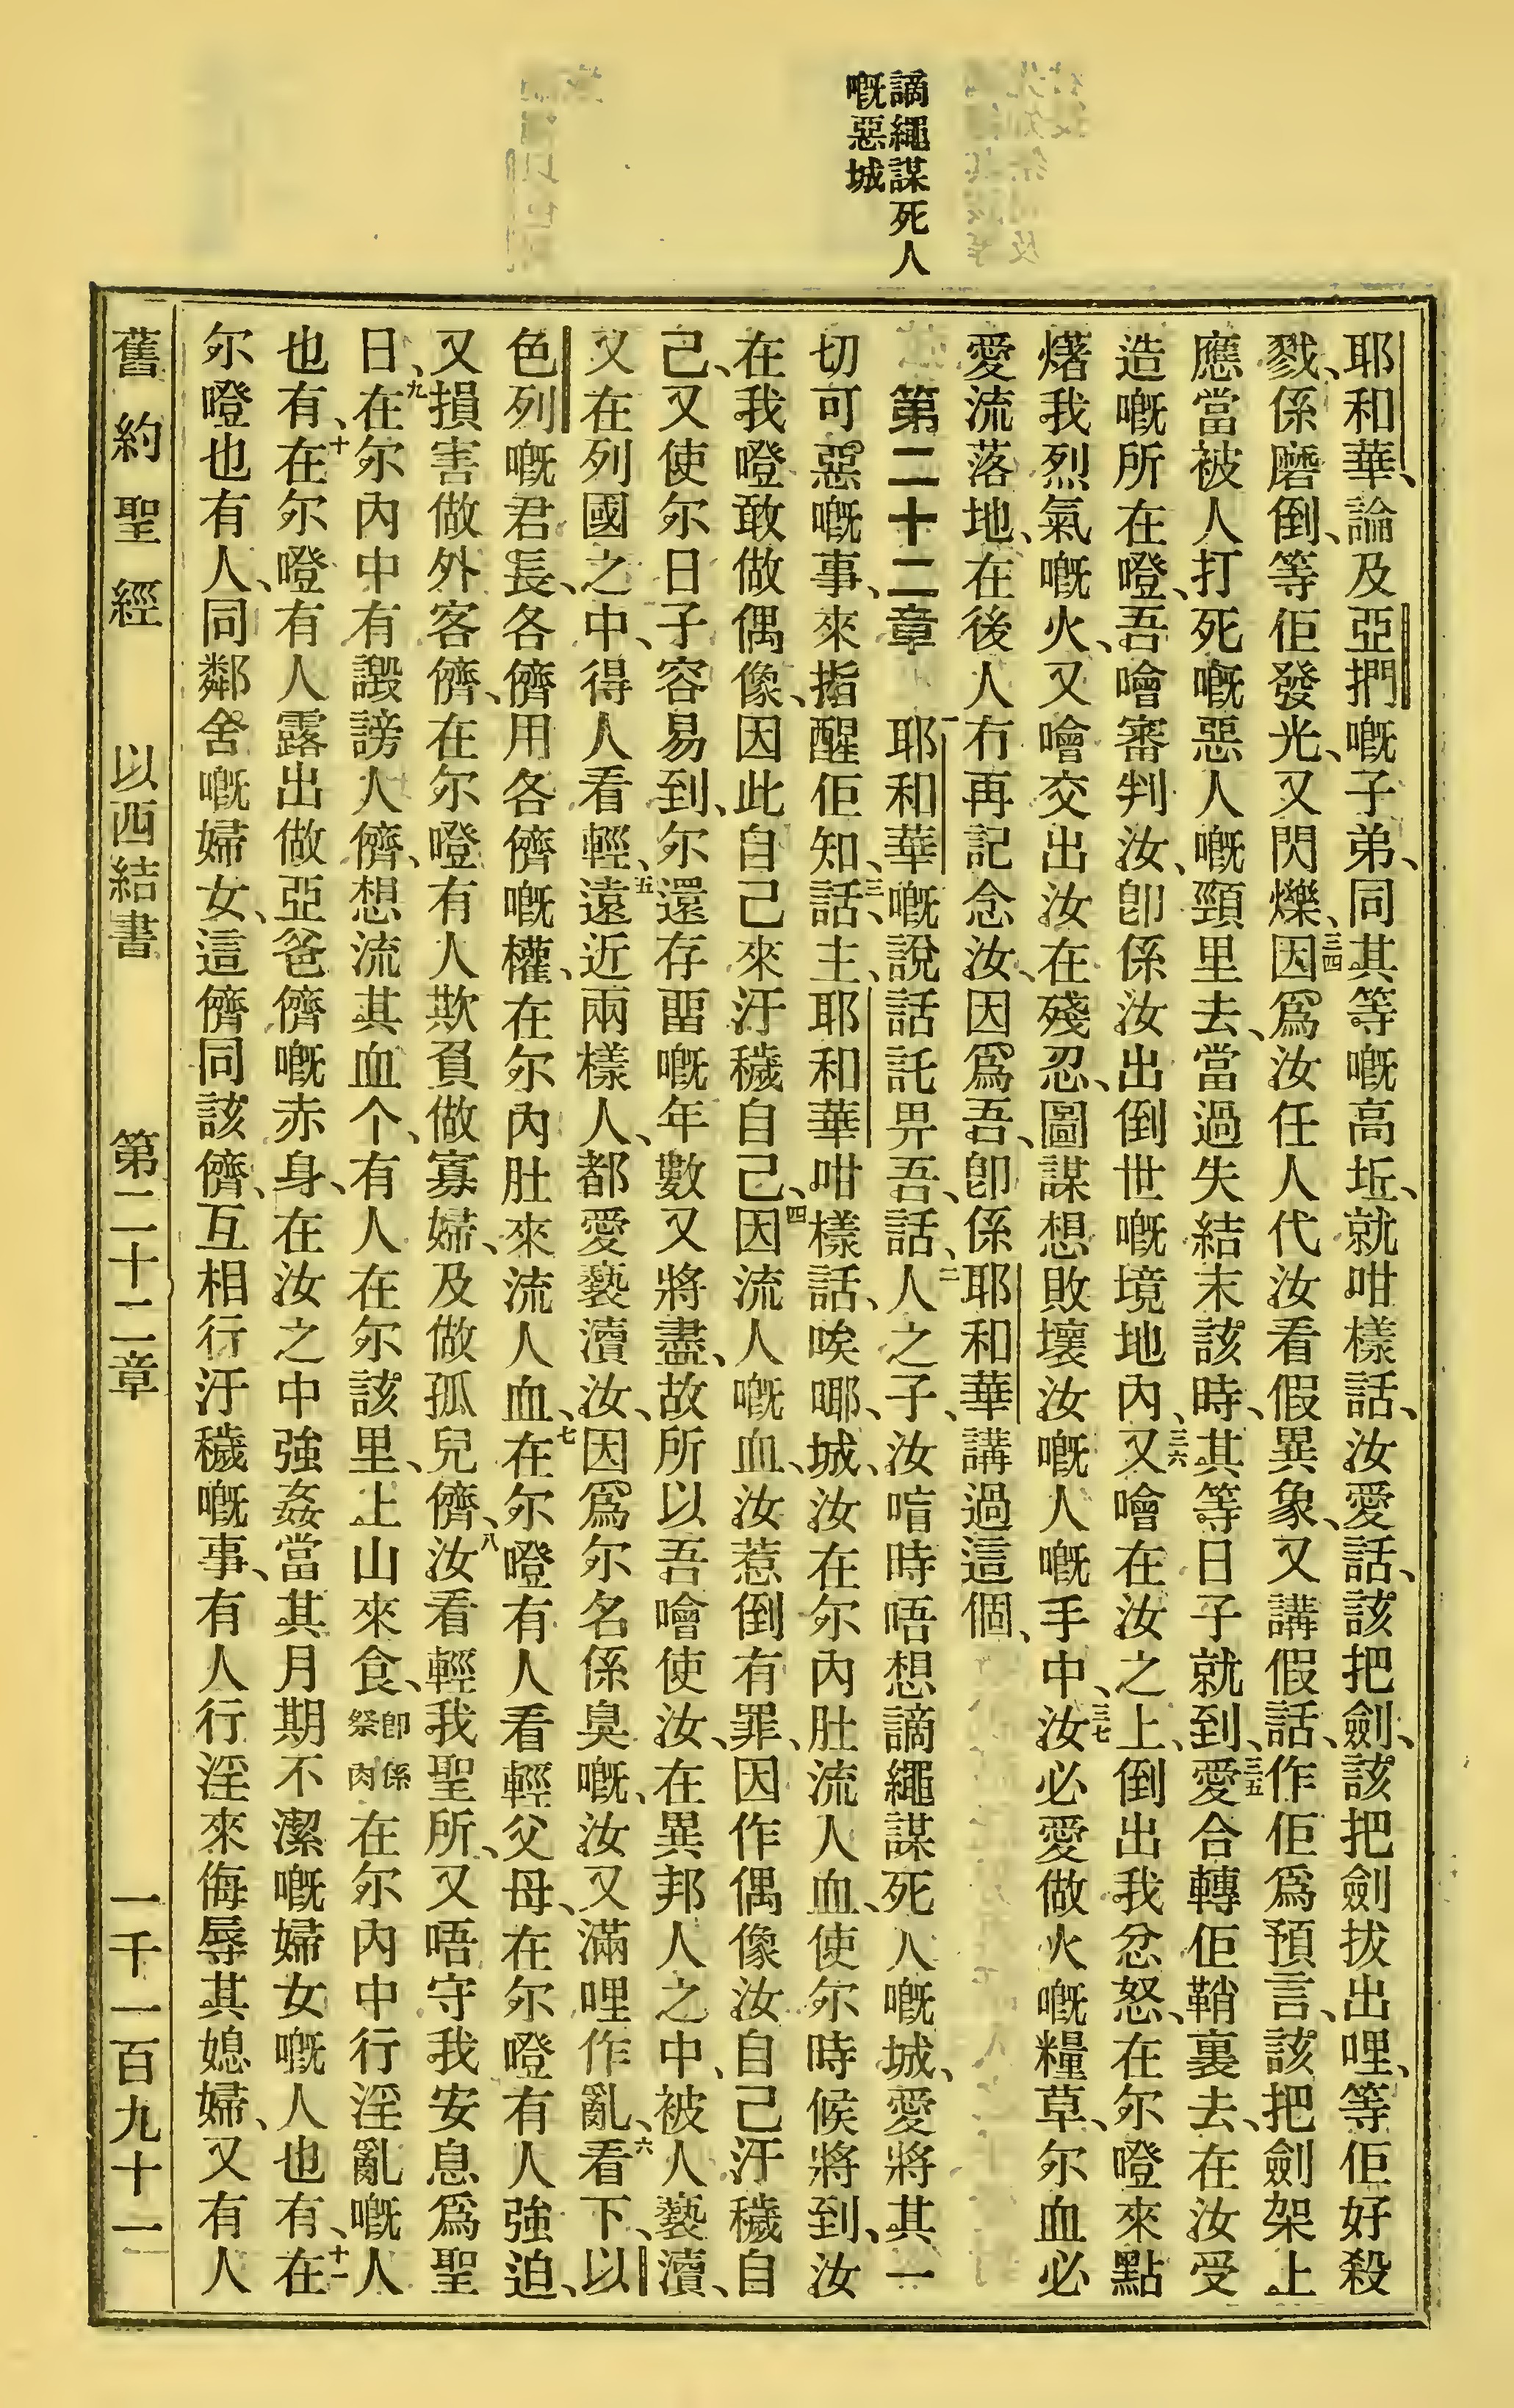 謫繩謀死人
嘅惡城
耶和華、論及亞捫嘅子弟、同其等嘅高坵、就咁樣話、汝愛話、該把劍、該把劍拔出哩、等佢好殺
戮、係磨倒、等佢發光、又閃爍、三四因爲汝任人代汝看假異象、又講假話、作佢爲預言、該把劍架上
應當被人打死嘅惡人嘅頸里去、當過失結末該時、其等日子就到、三五愛合轉佢鞘裏去、在汝受
造嘅所在噔、吾噲審判汝、卽係汝出倒世嘅境地內、三六又噲在汝之上、倒出我忿怒、在尔噔來點
㷮我烈氣嘅火、又噲交出汝在殘忍、圖謀想敗壞汝嘅人嘅手中、三七汝必愛做火嘅糧草、尔血必
愛流落地、在後人冇再記念汝、因爲吾、卽係耶和華講過這個、
第二十二章　一耶和華嘅說話託畀吾、話、二人之子、汝喑時唔想謫繩謀死人嘅城、愛將其一
切可惡嘅事、來指醒佢知、三話、主、耶和華咁樣話、唉㖿、城、汝在尔內肚流人血、使尔時候將到、汝
在我噔敢做偶像、因此自己來汙穢自己、四因流人嘅血、汝惹倒有罪、因作偶像汝自己汙穢自
己、又使尔日子容易到、尔還存畱嘅年數又將盡、故所以吾噲使汝、在異邦人之中、被人褻瀆、
又在列國之中、得人看輕、五遠近兩樣人、都愛褻瀆汝、因爲尔名係臭嘅、汝又滿哩作亂、六看下、以
色列嘅君長、各儕用各儕嘅權、在尔內肚來流人血、七在尔噔有人看輕父母、在尔噔有人強迫、
又損害做外客儕、在尔噔有人欺負做寡婦、及做孤兒儕、八汝看輕我聖所、又唔守我安息爲聖
日、九在尔內中有譭謗人儕、想流其血个、有人在尔該里、上山來食、卽係祭肉在尔內中行淫亂嘅人
也有、十在尔噔有人露出做亞爸儕嘅赤身、在汝之中強姦當其月期不潔嘅婦女嘅人也有、十一在
尔噔也有人、同鄰舍嘅婦女、這儕同該儕、互相行汙穢嘅事、有人行淫來侮辱其媳婦、又有人
舊約聖經　以西結書　第二十二章　一千一百九十一